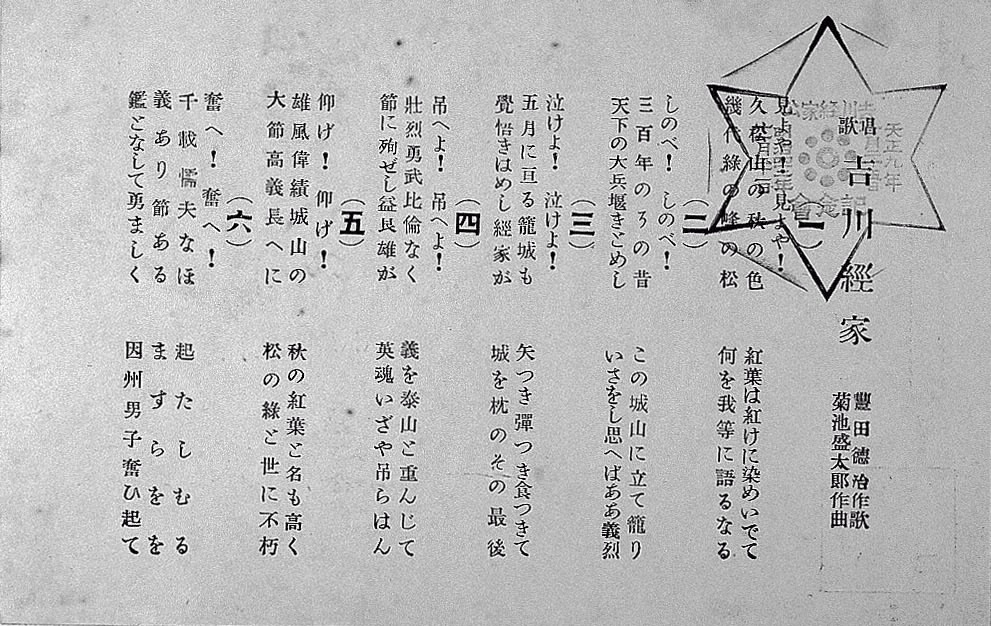 唱歌 吉川經家
豐田德治作歌
菊池盛太郎作曲
(一)
見よや！見よや！
久松山の秋の色
幾代綠の峰の松
紅葉は紅けに染めいでて
何を我等に語るなる
(二)
しのべ！しのべ！
三百年のその昔
天下の大兵堰きとめし
この城山に立て籠り
いさをし思へばああ義烈
(三)
泣けよ！泣けよ！
五月に亘る籠城も
覺悟きはめし經家が
矢つき彈つき食つきて
城を枕のその最後
(四)
吊へよ！吊へよ！
壯烈勇武比倫なく
節に殉ぜし益良雄が
義を泰山と重んじて
英魂いざや吊らはん
(五)
仰げ！仰げ！
雄風偉績城山の
大節高義長へに
秋の紅葉と名も高く
松の綠と世に不朽
(六)
奮へ！奮へ！
千載懦夫なほ
義あり節ある
鑑となして勇ましく
起たしむる
ますらをを
因州男子奮ひ起て
吉川經家公
天正九年
記念會